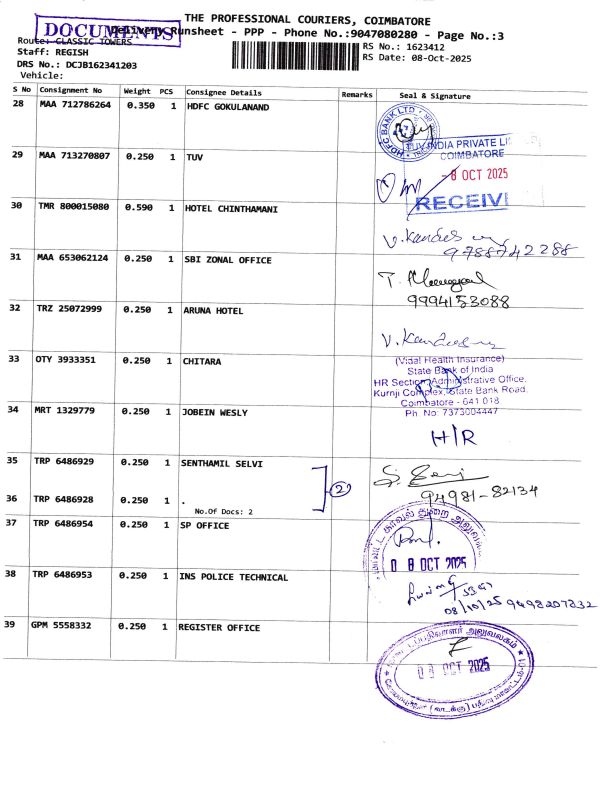 THE PROFESSIONAL COURIERS, COIMBATORE
DOCUMENTS
Delivery Runsheet - PPP - Phone No.:9047080280 - Page No.:3
Route: CLASSIC TOWERS
Staff: REGISH
DRS No.: DCJB162341203
Vehicle:
RS No.: 1623412
RS Date: 08-Oct-2025
S No Consignment No Weight PCS Consignee Details Remarks Seal & Signature
28 MAA 712786264 0.350 1 HDFC GOKULANAND
HDFC BANK LTD
29 MAA 713270807 0.250 1 TUV
TUV INDIA PRIVATE LI
COIMBATORE
- 8 OCT 2025
RECEIV
30 TMR 800015080 0.590 1 HOTEL CHINTHAMANI
9788742288
31 MAA 653062124 0.250 1 SBI ZONAL OFFICE
9994153088
32 TRZ 25072999 0.250 1 ARUNA HOTEL
33 OTY 3933351 0.250 1 CHITARA
(Vidal Health Insurance)
State Bank of India
HR Section, Administrative Office,
Kurnji Complex, State Bank Road,
Coimbatore - 641 018
Ph No: 7373004447
34 MRT 1329779 0.250 1 JOBEIN WESLY
H/R
35 TRP 6486929 0.250 1 SENTHAMIL SELVI
94981-82134
36 TRP 6486928 0.250 1 .
No.Of Docs: 2
2
37 TRP 6486954 0.250 1 SP OFFICE
காவல் துறை அலுவலகம்
0 8 OCT 2025
38 TRP 6486953 0.250 1 INS POLICE TECHNICAL
08/10/25 9498207832
39 GPM 5558332 0.250 1 REGISTER OFFICE
0 8 OCT 2025